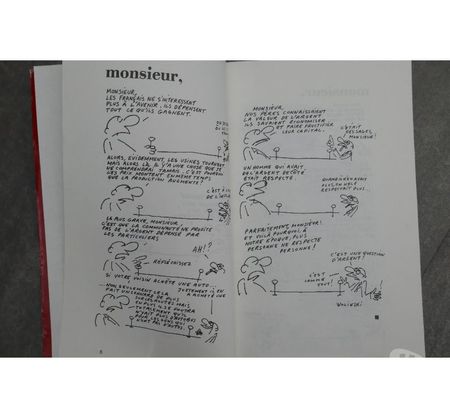 monsieur,
MONSIEUR,
LES FRANÇAIS NE S'INTERESSENT
PLUS À L'AVENIR. ILS DÉPENSENT
TOUT CE QU'ILS GAGNENT.
ALORS, ÉVIDEMMENT, LES USINES TOURNENT
MAIS ALORS LÀ, IL Y A UNE CHOSE QUE JE
NE COMPRENDRAI JAMAIS. C'EST POURQUOI
LES PRIX MONTENT EN MÊME TEMPS
QUE LA PRODUCTION AUGMENTE?
C'EST À
LE PLUS GRAVE, MONSIEUR,
C'EST QUE LA COMMUNAUTÉ NE PROFITE
PAS DE L'ARGENT DÉPENSÉ PAR
LES PARTICULIERS
AH!?
RÉFLÉCHISSEZ
SI VOTRE VOISIN ACHÈTE UNE AUTO.
JUSTEMENT IL EN
A ACHETÉ UNE
NON SEULEMENT CELA
8
MONSIEUR,
NOS PÈRES CONNAISSAIENT
LA VALEUR DE L'ARGENT
ILS SAVAIENT ÉCONOMISER
ET FAIRE FRUCTIFIER
LEUR CAPITAL.
C'ÉTAIT
DES SAGES,
MONSIEUR
UN HOMME QUI AVAIT
DE L'ARGENT DE CÔTÉ
ÉTAIT RESPECTÉ.
QUAND IL N'EN AVAIT
PLUS, ON NE LE
RESPECTAIT PLUS...
PARFAITEMENT, MONSIEUR!
ET VOILÀ POURQUOI À
NOTRE ÉPOQUE, PLUS
PERSONNE NE RESPECTE
PERSONNE!
C'EST UNE QUESTION
D'ARGENT!
C'EST
COMME
TOUT!
WOLINSKI